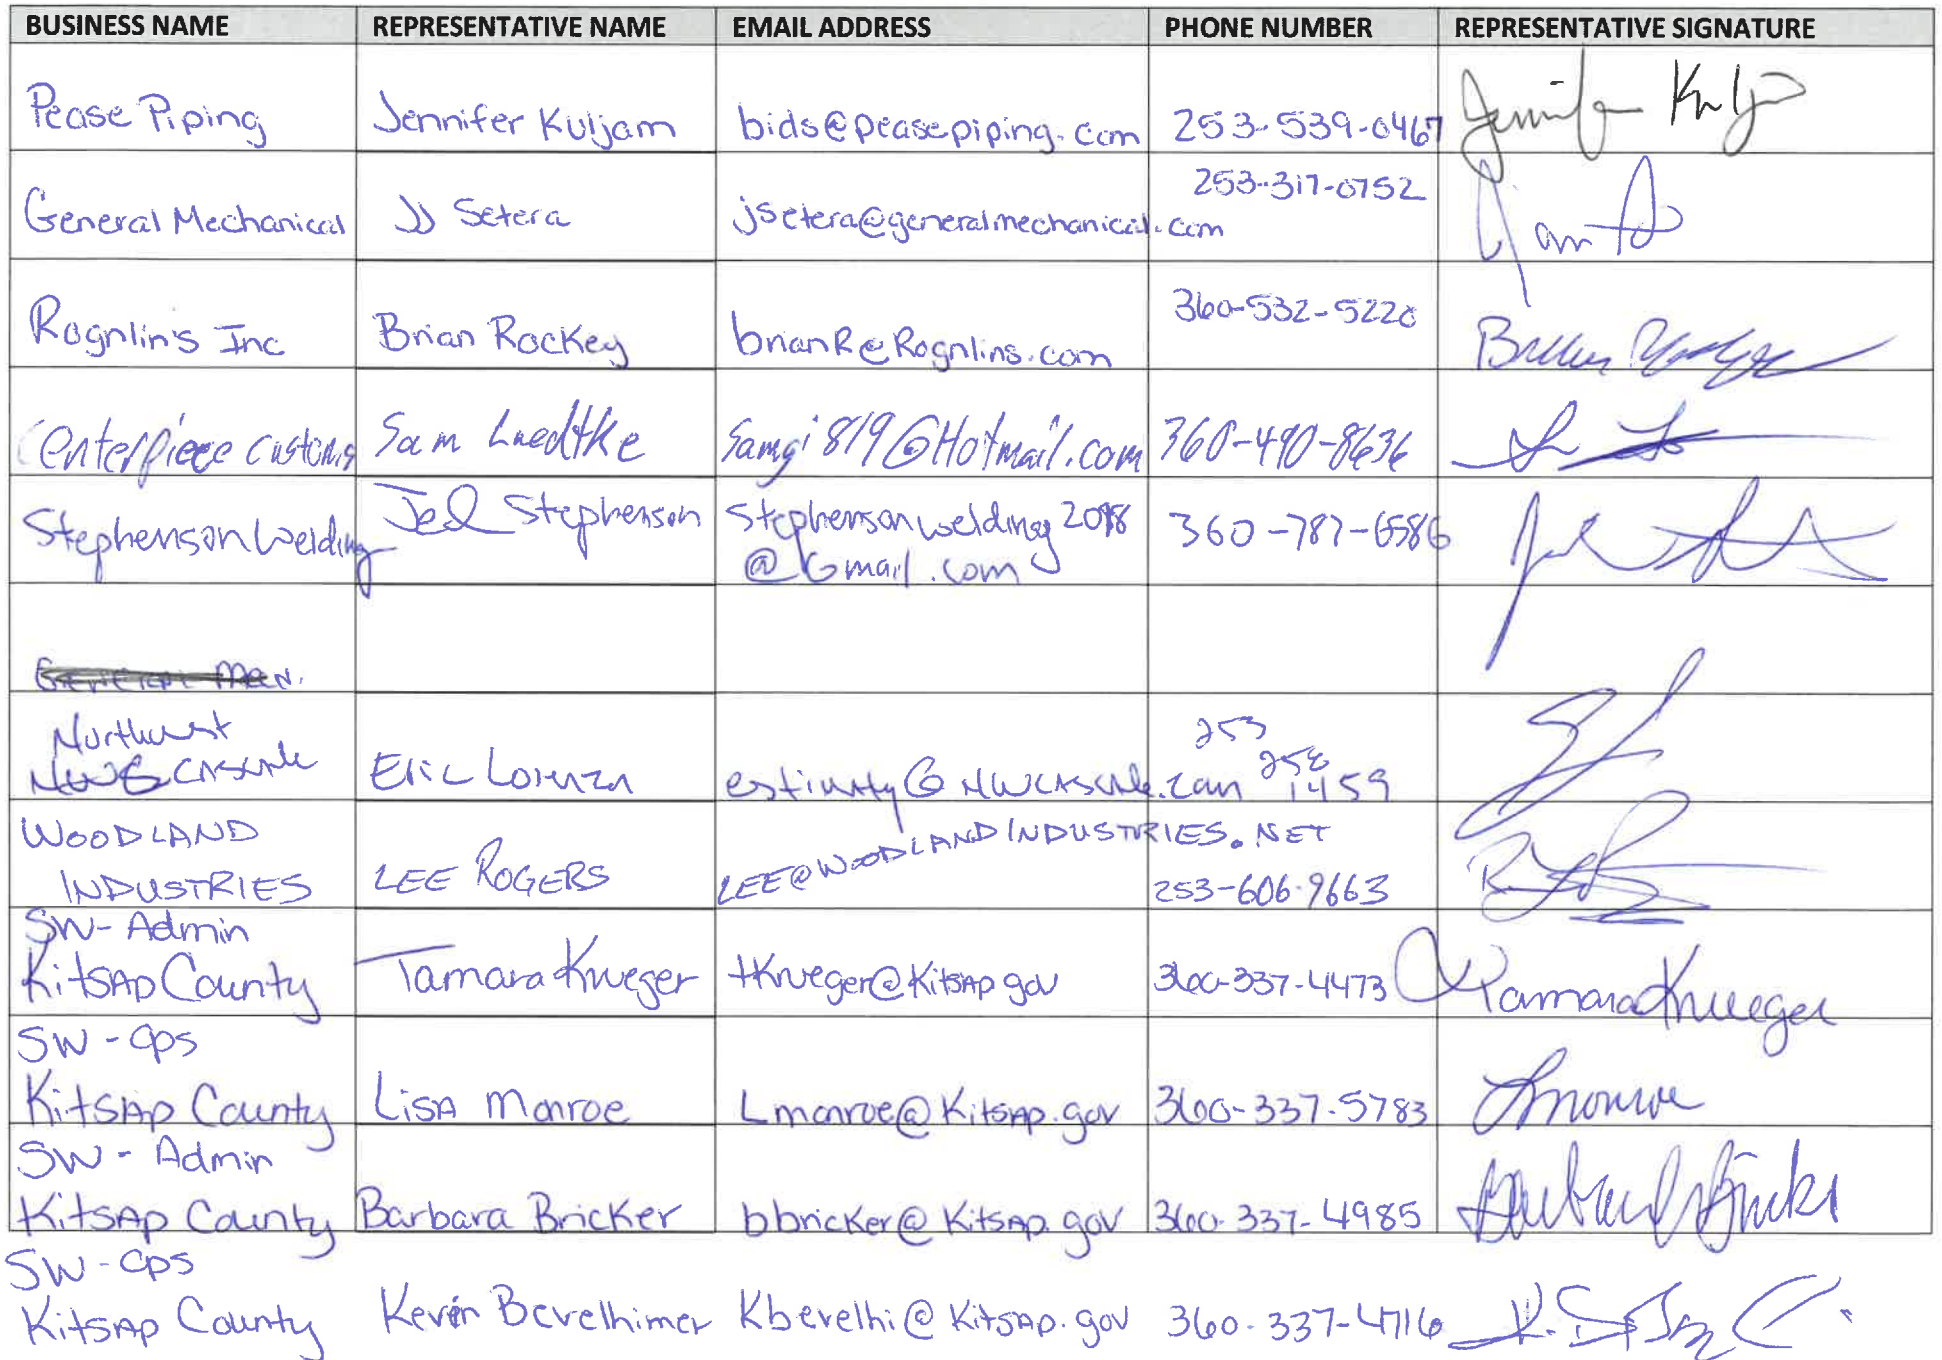 BUSINESS NAME REPRESENTATIVE NAME EMAIL ADDRESS PHONE NUMBER REPRESENTATIVE SIGNATURE
Pease Piping Jennifer Kuljam bids@peasepiping.com 253-539-0467
General Mechanical JJ Setera jsetera@generalmechanical.com 253-317-0752
Rognlin's Inc Brian Rockey brianR@Rognlins.com 360-532-5220
Centerpiece Customs Sam Luedtke Samgi819@Hotmail.com 360-490-8636
Stephenson Welding Jed Stephenson Stephensonwelding2018
@Gmail.com 360-787-6586
Northwest
Cascade Eric 253
258
1459
WOODLAND
INDUSTRIES LEE ROGERS LEE@WOODLANDINDUSTRIES.NET 253-606-9663
SW-Admin
Kitsap County Tamara Krueger tkrueger@kitsap.gov 360-337-4473 Tamara Krueger
SW-Ops
Kitsap County Lisa Monroe Lmonroe@Kitsap.gov 360-337-5783 Lmonroe
SW-Admin
Kitsap County Barbara Bricker bbricker@Kitsap.gov 360-337-4985
SW-Ops
Kitsap County Kevin Bevelhimer Kbevelhi@Kitsap.gov 360-337-4716